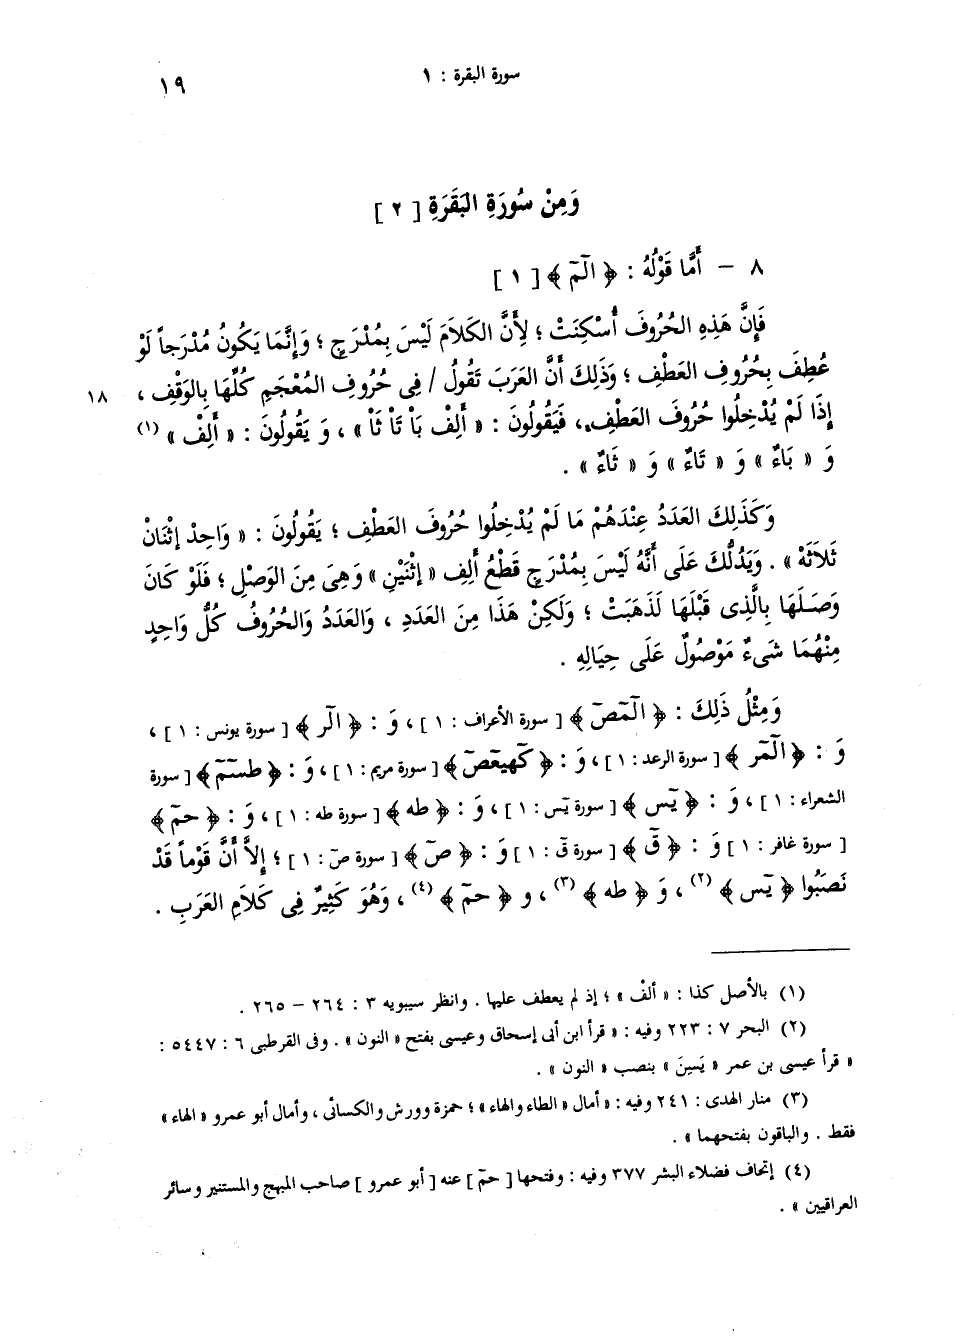 سورة البقرة : ١
١٩
وَمِنْ سُورَةِ البَقَرَةِ [ ٢ ]
٨ – أَمَّا قَوْلُهُ : ﴿ الٓمٓ ﴾ [ ١ ]
فَإِنَّ هَذِهِ الحُرُوفَ أُسْكِنَتْ ؛ لِأَنَّ الكَلَامَ لَيْسَ بِمُدْرَجٍ ؛ وَإِنَّمَا يَكُونُ مُدْرَجاً لَوْ
عُطِفَ بِحُرُوفِ العَطْفِ ؛ وَذَلِكَ أَنَّ العَرَبَ تَقُولُ / فِى حُرُوفِ المُعْجَمِ كُلِّهَا بِالوَقْفِ ، ١٨
إِذَا لَمْ يُدْخِلُوا حُرُوفَ العَطْفِ، فَيَقُولُونَ : « أَلِفْ بَاْ تَاْ ثَاْ » ، وَ يَقُولُونَ : « أَلِفْ » (١)
وَ « بَاءٌ » وَ « تَاءٌ » وَ « ثَاءٌ » .
وَكَذَلِكَ العَدَدُ عِنْدَهُمْ مَا لَمْ يُدْخِلُوا حُرُوفَ العَطْفِ ؛ يَقُولُونَ : « وَاحِدْ إثْنَانْ
ثَلَاثَهْ » . وَيَدُلُّكَ عَلَى أَنَّهُ لَيْسَ بِمُدْرَجٍ قَطْعُ أَلِفِ « إثْنَيْنِ » وَهِىَ مِنَ الوَصْلِ ؛ فَلَوْ كَانَ
وَصَلَهَا بِالَّذِى قَبْلَهَا لَذَهَبَتْ ؛ وَلَكِنْ هَذَا مِنَ العَدَدِ ، وَالعَدَدُ وَالحُرُوفُ كُلُّ وَاحِدٍ
مِنْهُمَا شَىءٌ مَوْصُولٌ عَلَى حِيَالِهِ .
وَمِثْلُ ذَلِكَ : ﴿ الٓمٓصٓ ﴾ [ سورة الأعراف : ١ ] ، وَ : ﴿ الٓر ﴾ [ سورة يونس : ١ ] ،
وَ : ﴿ الٓمٓر ﴾ [ سورة الرعد : ١ ] ، وَ : ﴿ كٓهيعٓصٓ ﴾ [ سورة مريم : ١ ] ، وَ : ﴿ طسٓمٓ ﴾ [ سورة
الشعراء : ١ ] ، وَ : ﴿ يٓس ﴾ [ سورة يٓس : ١ ] ، وَ : ﴿ طه ﴾ [ سورة طه : ١ ] ، وَ : ﴿ حمٓ ﴾
[ سورة غافر : ١ ] وَ : ﴿ قٓ ﴾ [ سورة قٓ : ١ ] وَ : ﴿ صٓ ﴾ [ سورة صٓ : ١ ] ؛ إلاَّ أَنَّ قَوْماً قَدْ
نَصَبُوا ﴿ يٓس ﴾ (٢) ، وَ ﴿ طه ﴾ (٣) ، و ﴿ حمٓ ﴾ (٤) ، وَهُوَ كَثِيرٌ فِى كَلَامِ العَرَبِ .
(١) بالأصل كذا : « ألفْ » ؛ إذ لم يعطف عليها . وانظر سيبويه ٣ : ٢٦٤ – ٢٦٥ .
(٢) البحر ٧ : ٢٢٣ وفيه : « قرأ ابن أبى إسحاق وعيسى بفتح « النون » . وفى القرطبى ٦ : ٥٤٤٧ :
« قرأ عيسى بن عمر « يَسِينَ » بنصب « النون » .
(٣) منار الهدى : ٢٤١ وفيه : « أمال « الطاء والهاء » ؛ حمزة وورش والكسائى ، وأمال أبو عمرو « الهاء »
فقط . والباقون بفتحهما » .
(٤) إتحاف فضلاء البشر ٣٧٧ وفيه : وفتحها [ حمٓ ] عنه [ أبو عمرو ] صاحب المبهج والمستنير وسائر
العراقيين » .